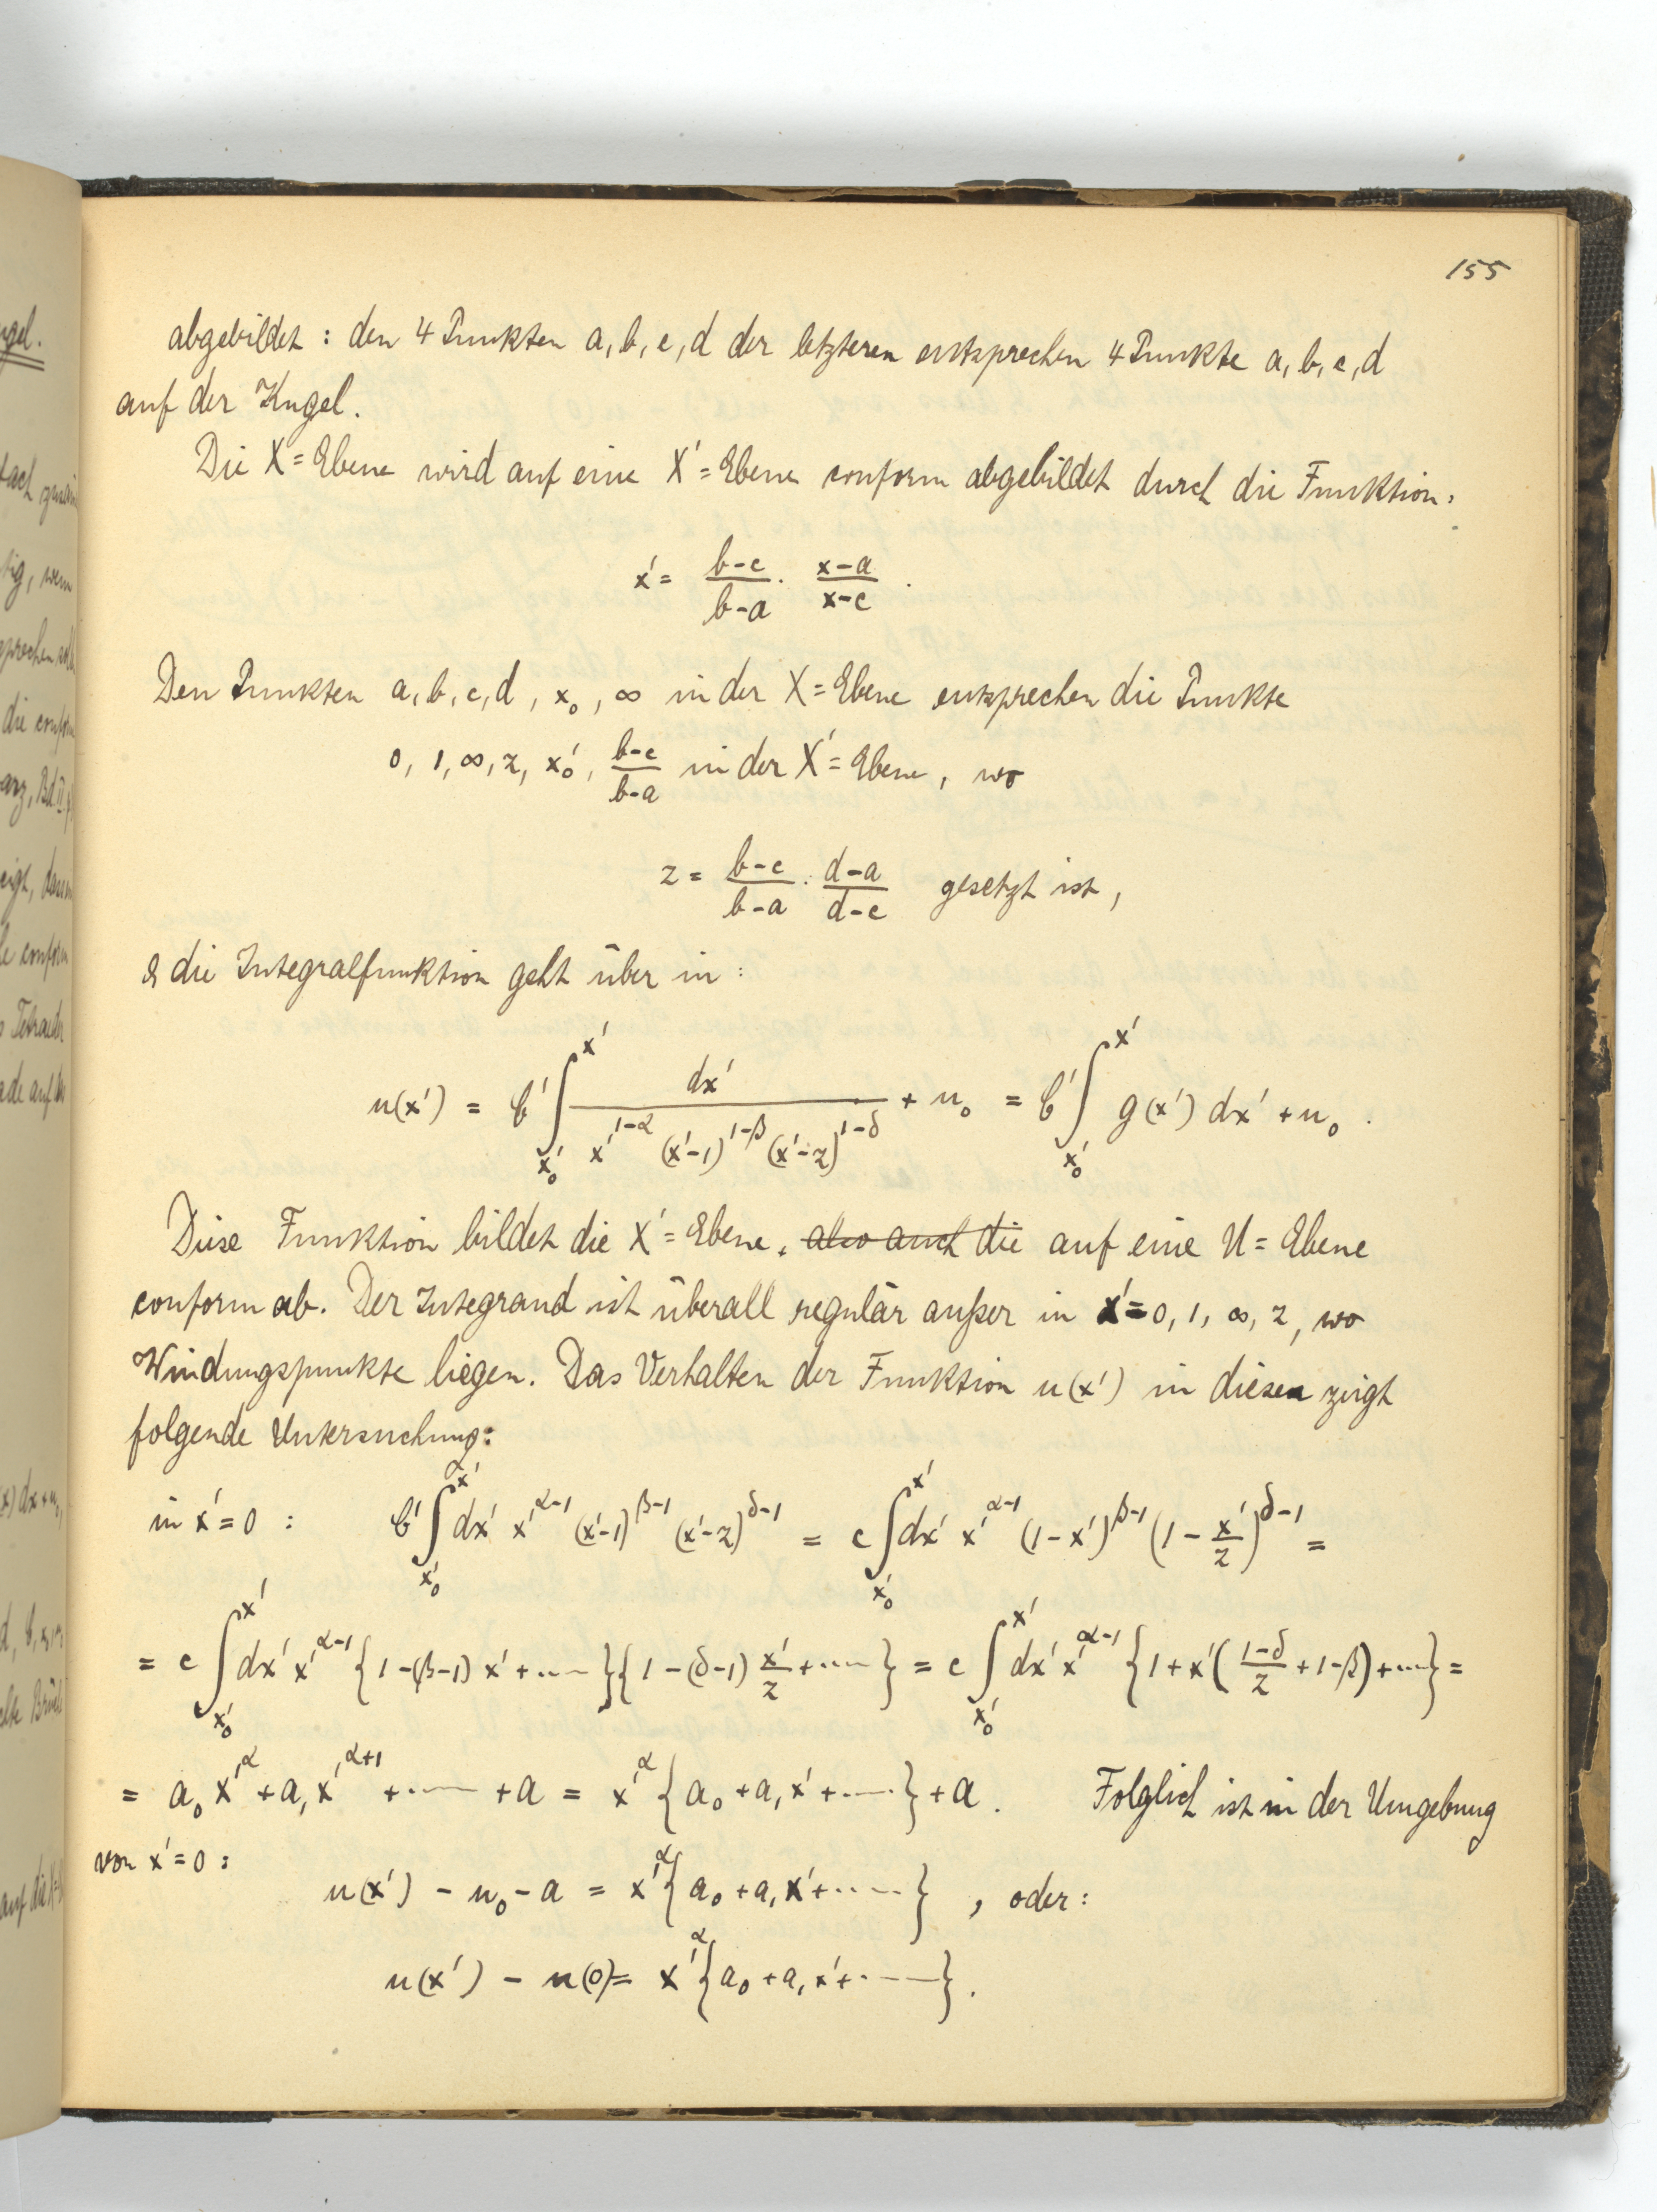 155
abgebildet : den 4 Punkten a, b, c, d der letzteren entsprechen 4 Punkte a, b, c, d
auf der Kugel.
Die X=Ebene wird auf eine X'=Ebene conform abgebildet durch die Funktion:
x' = \frac{b-c}{b-a} \cdot \frac{x-a}{x-c} .
Den Punkten a, b, c, d, x_0, ∞ in der X=Ebene entsprechen die Punkte
0, 1, ∞, z, x_0', \frac{b-c}{b-a} in der X'=Ebene, wo
z = \frac{b-c}{b-a} \cdot \frac{d-a}{d-c} gesetzt ist,
& die Integralfunktion geht über in :
u(x') = b' \int_{x_0'}^{x'} \frac{dx'}{x'^{1-α} (x'-1)^{1-β} (x'-z)^{1-δ}} + u_0 = b' \int_{x_0'}^{x'} g(x') dx' + u_0 .
Diese Funktion bildet die X'=Ebene, also auch die auf eine U=Ebene
conform ab. Der Integrand ist überall regulär außer in x'=0, 1, ∞, z, wo
Windungspunkte liegen. Das Verhalten der Funktion u(x') in diesen zeigt
folgende Untersuchung:
in x'=0 : b' \int_{x_0'}^{x'} dx' x'^{α-1} (x'-1)^{β-1} (x'-z)^{δ-1} = c \int_{x_0'}^{x'} dx' x'^{α-1} (1-x')^{β-1} (1-\frac{x'}{z})^{δ-1} =
= c \int_{x_0'}^{x'} dx' x'^{α-1} {1-(β-1) x' + ....}{1-(δ-1) \frac{x'}{z} + ....} = c \int_{x_0'}^{x'} dx' x'^{α-1} {1+x'(\frac{1-δ}{z} +1-β)+....} =
= a_0 x'^α + a_1 x'^{α+1} + .... + a = x'^α {a_0 + a_1 x' + ....} + a . Folglich ist in der Umgebung
von x'=0 :
u(x') - u_0 - a = x'^α {a_0 + a_1 x' + ....} , oder :
u(x') - u(0) = x'^α {a_0 + a_1 x' + ....} .